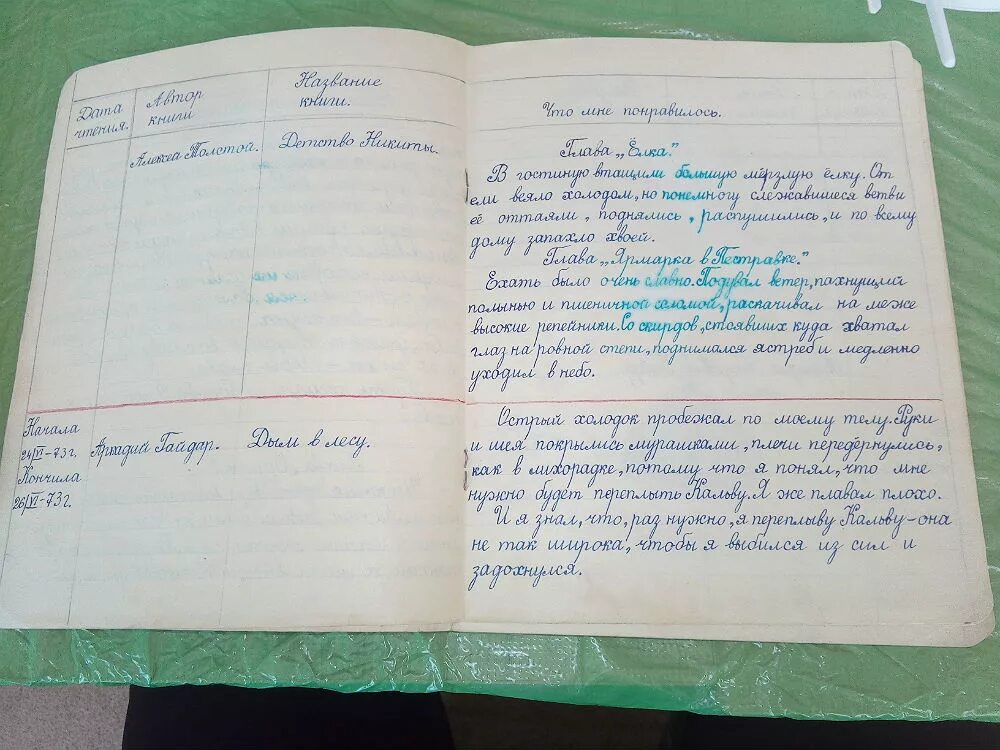 Дата
чтения.
Автор
книги
Название
книги.
Алексей Толстой.
Детство Никиты.
Начала
24/VI-73г.
Кончила
26/VI-73г.
Аркадий Гайдар.
Дым в лесу.
Что мне понравилось.
Глава „Ёлка."
В гостиную втащили большую мёрзлую ёлку. От
ели веяло холодом, но понемногу слежавшиеся ветви
её оттаяли, поднялись, распушились, и по всему
дому запахло хвоей.
Глава „Ярмарка в Пестравке."
Ехать было очень славно. Подувал ветер, пахнущий
полынью и пшеничной соломой, раскачивал на меже
высокие репейники. Со скирдов, стоявших куда хватал
глаз на ровной степи, поднимался ястреб и медленно
уходил в небо.
Острый холодок пробежал по моему телу. Руки
и шея покрылись мурашками, плечи передёрнулись,
как в лихорадке, потому что я понял, что мне
нужно будет переплыть Кальву. Я же плавал плохо.
И я знал, что, раз нужно, я переплыву Кальву – она
не так широка, чтобы я выбился из сил и
задохнулся.